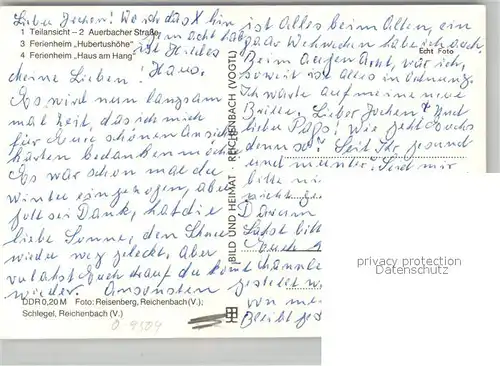 Lieber Jochen! Wo ich das X hin
gemacht habe
ist Heides
Haus.
1 Teilansicht – 2 Auerbacher Straße
3 Ferienheim „Hubertushöhe"
4 Ferienheim „Haus am Hang"
Meine Lieben!
Es wird nun langsam
mal Zeit das ich mich
für Eure schönen Ansichts
karten bedanken möchte
Es war schon mal der
Winter eingezogen, aber
Gott sei Dank, hat die
liebe Sonne, den Schnee
wieder weg geleckt, Aber
verlaßt Euch drauf der kommt
wieder. Ansonsten
DDR 0,20 M Foto: Reisenberg, Reichenbach (V.);
Schlegel, Reichenbach (V.)
BILD UND HEIMAT · REICHENBACH (VOGTL)
ist Alles beim Alten, ein
paar Wehwehen habe ich auch.
Echt Foto
Beim Augen Arzt, war ich,
soweit ist alles in Ordnung.
Ich warte auf meine neue
Brille. Lieber Jochen & Und
lieber Paps! Wie geht's Euch
denn so? Seit Ihr gesund
und munter! Seid mir
bitte
nicht
Darum
Laßt bitt
Euch
gestellt
von
Bleibt ges
privacy protection
DATENSCHUTZ